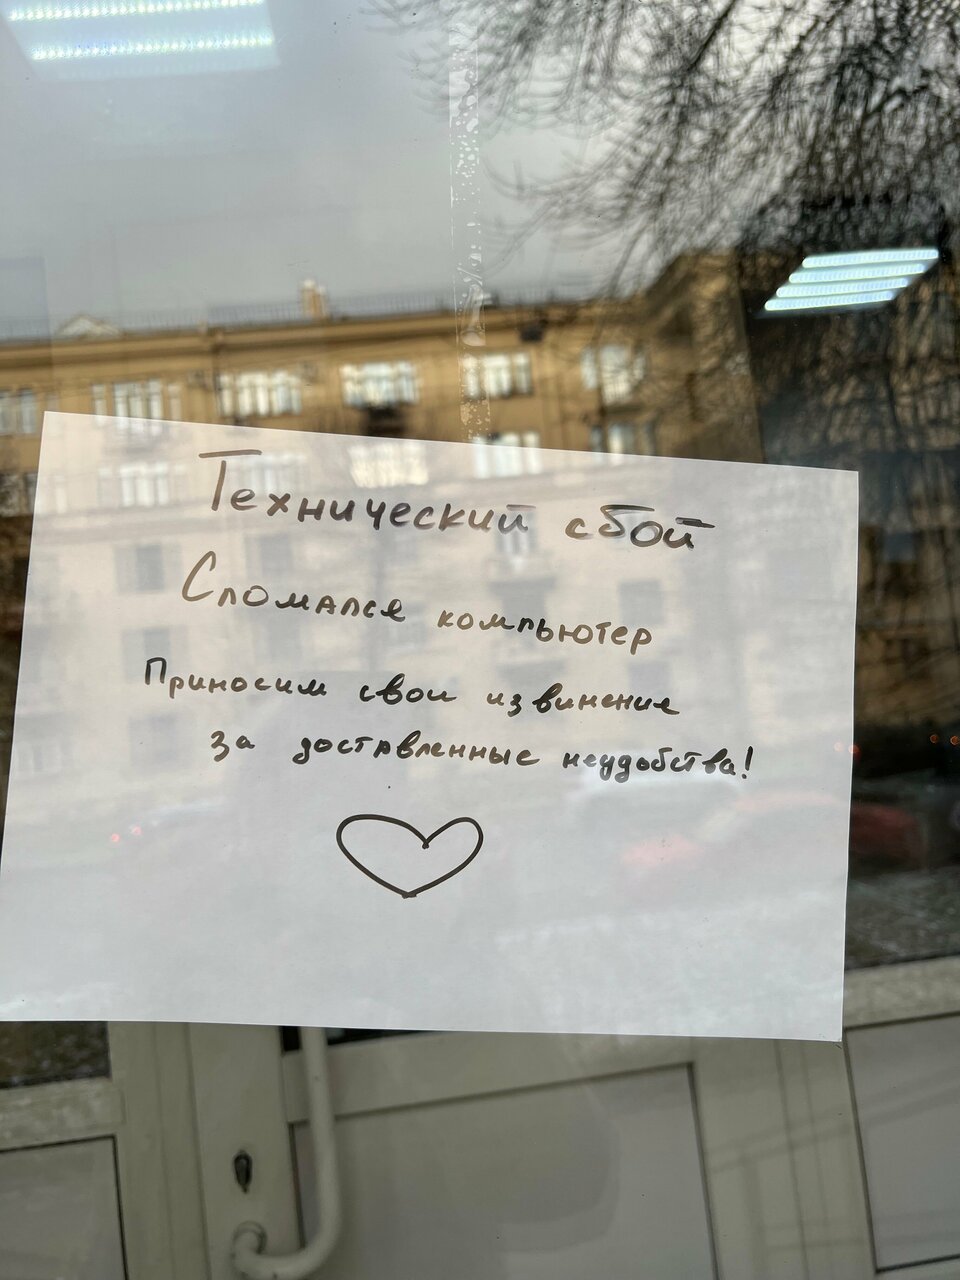 Технический сбой
Сломался компьютер
Приносим свои извинение
за доставленные неудобства!